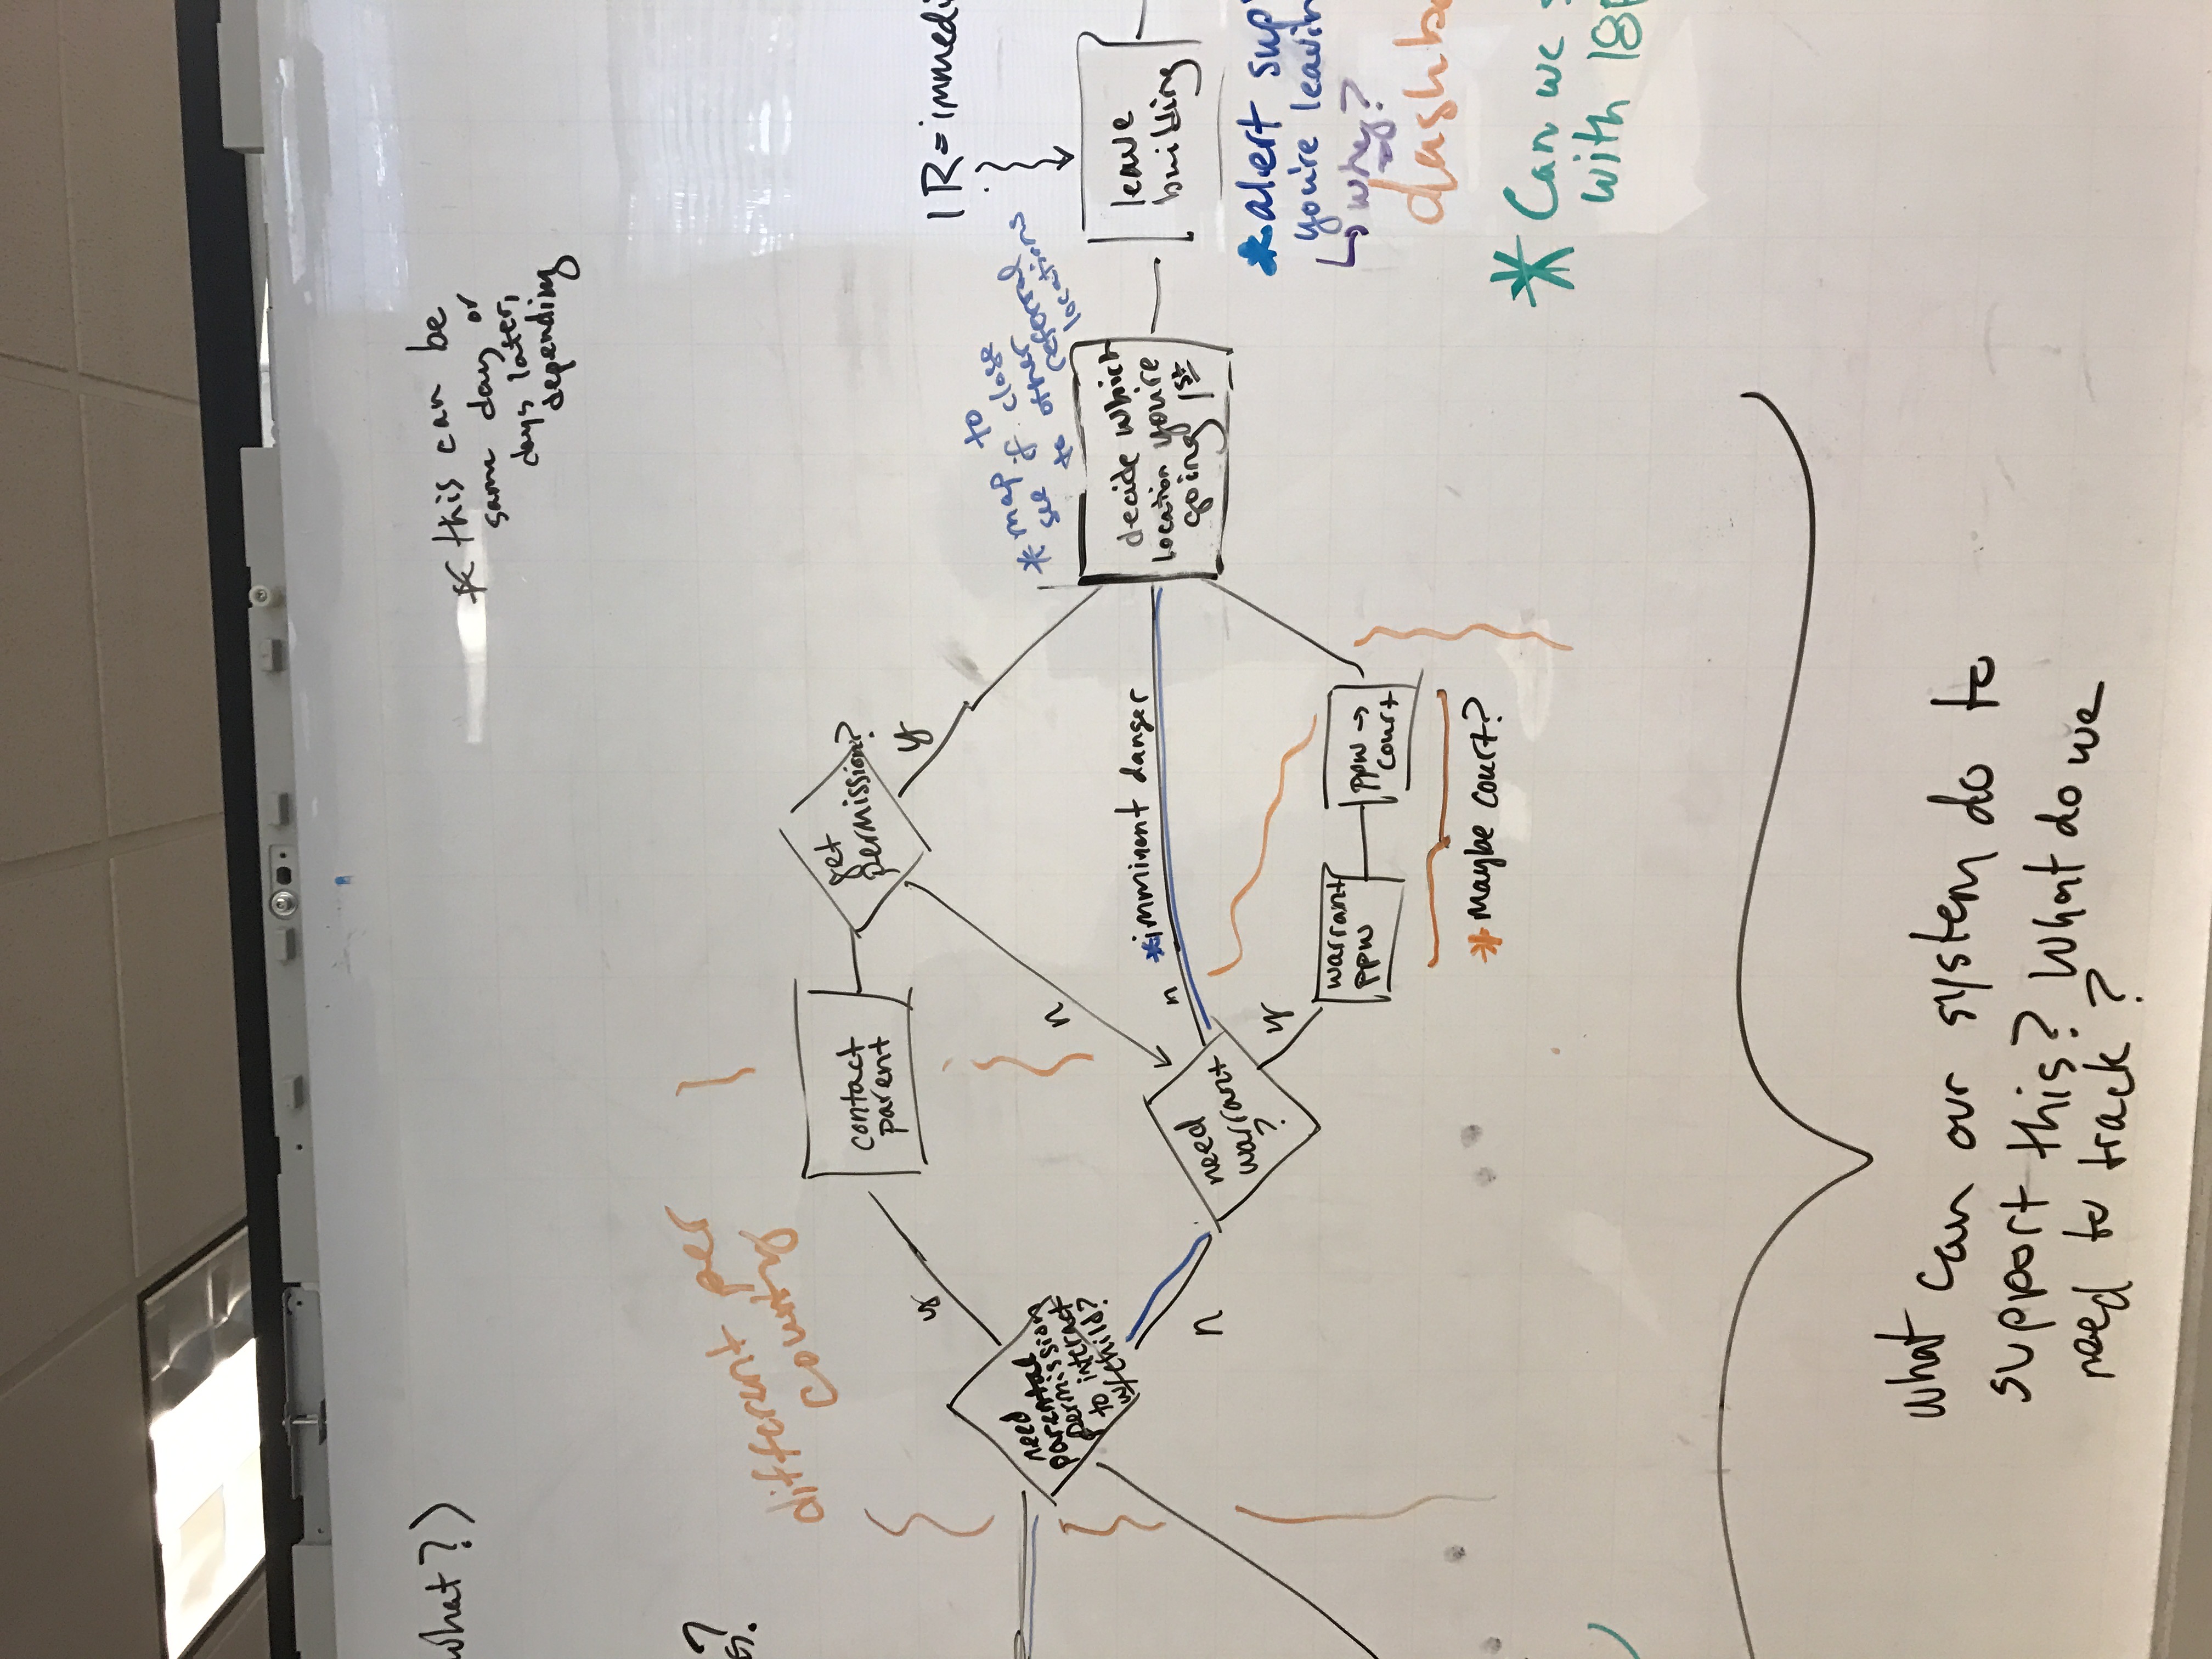 what?)
* this can be
same day or
days later,
depending
s?
different per
county
contact
parent
get
permission?
y
y
n
need
parental
permission
to interact
w/child?
n
need
warrant
?
n
*imminent danger
y
warrant
ppw
ppw →
court
* maybe court?
* map to
see if close
to other
referral
locations
decide which
location you're
going 1st
IR = immedi
leave
building
* alert sup
you're leavin
why?
dashb
* Can we s
with 18p
what can our system do to
support this? What do we
need to track?